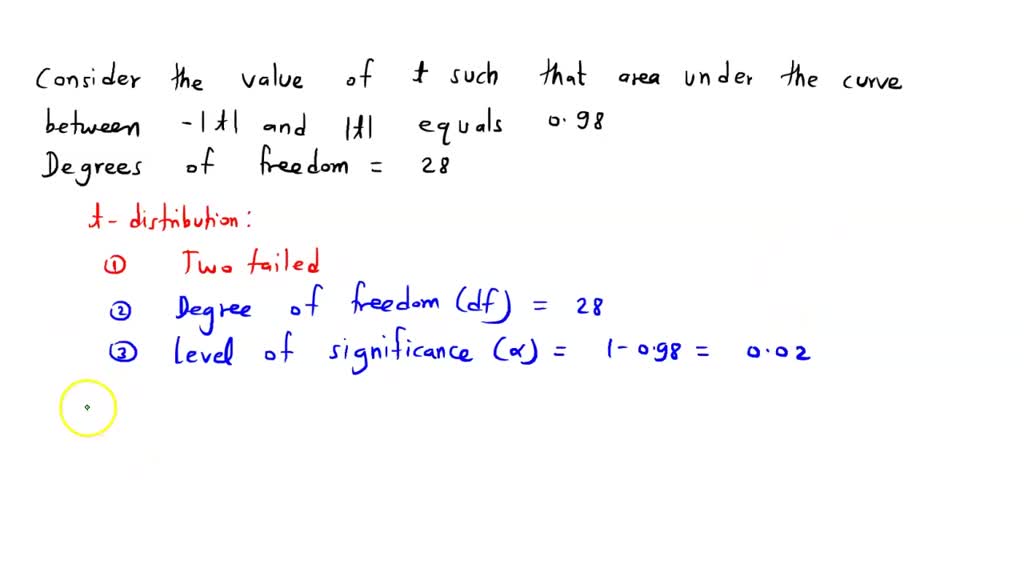 Consider the value of t such that area under the curve
between -|t| and |t| equals 0.98
Degrees of freedom = 28
t- distribution:
① Two tailed
② Degree of freedom (df) = 28
③ level of significance (α) = 1-0.98 = 0.02